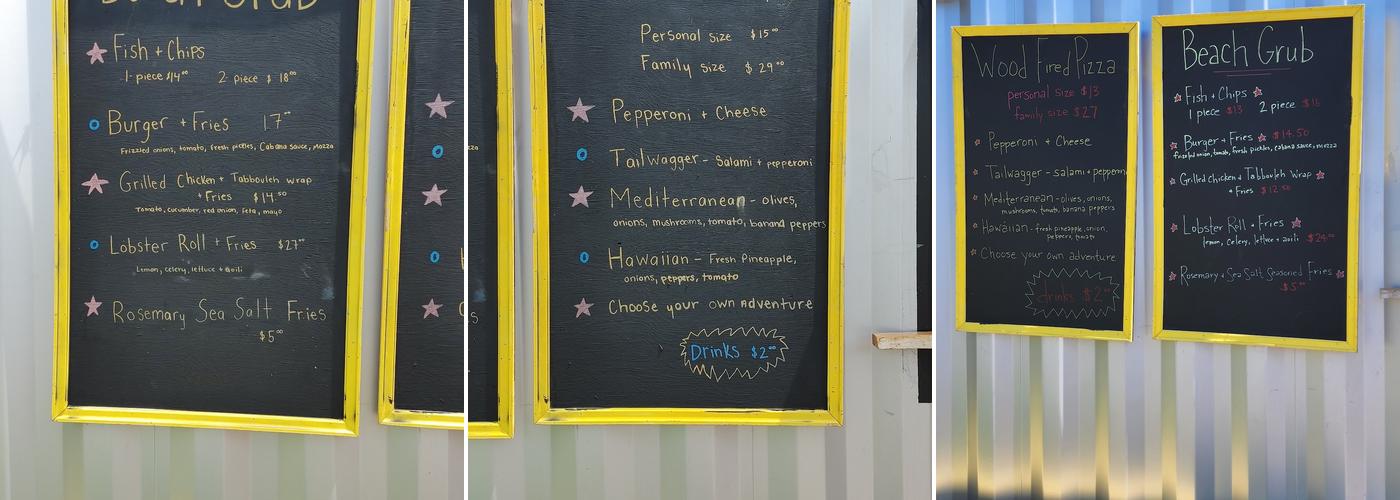 Beach Grub
Fish + Chips
1 piece $14⁰⁰ 2 piece $18⁰⁰
Burger + Fries 17⁰⁰
Frizzled onions, tomato, fresh pickles, Cabana sauce, mozza
Grilled Chicken + Tabbouleh wrap
+ Fries $14.⁵⁰
Tomato, cucumber, red onion, feta, mayo
Lobster Roll + Fries $27⁰⁰
Lemon, celery, lettuce + aoili
Rosemary Sea Salt Fries
$5⁰⁰
Personal size $15⁰⁰
Family size $29⁰⁰
Pepperoni + Cheese
Tailwagger - Salami + pepperoni
Mediterranean - olives,
onions, mushrooms, tomato, banana peppers
Hawaiian - Fresh Pineapple,
onions, peppers, tomato
Choose your own Adventure
Drinks $2⁰⁰
Wood Fired Pizza
personal size $13
family size $27
Pepperoni + Cheese
Tailwagger - salami + pepperoni
Mediterranean - olives, onions,
mushrooms, tomato, banana peppers
Hawaiian - fresh pineapple, onion,
peppers, tomato
Choose your own adventure
drinks $2⁰⁰
Beach Grub
Fish + Chips
1 piece $13 2 piece $16
Burger + Fries $14.50
frizzled onion, tomato, fresh pickles, cabana sauce, mozza
Grilled chicken + Tabbouleh Wrap
+ Fries $12.50
Lobster Roll + Fries
lemon, celery, lettuce + aoili $24⁰⁰
Rosemary + Sea Salt Seasoned Fries
$5⁰⁰